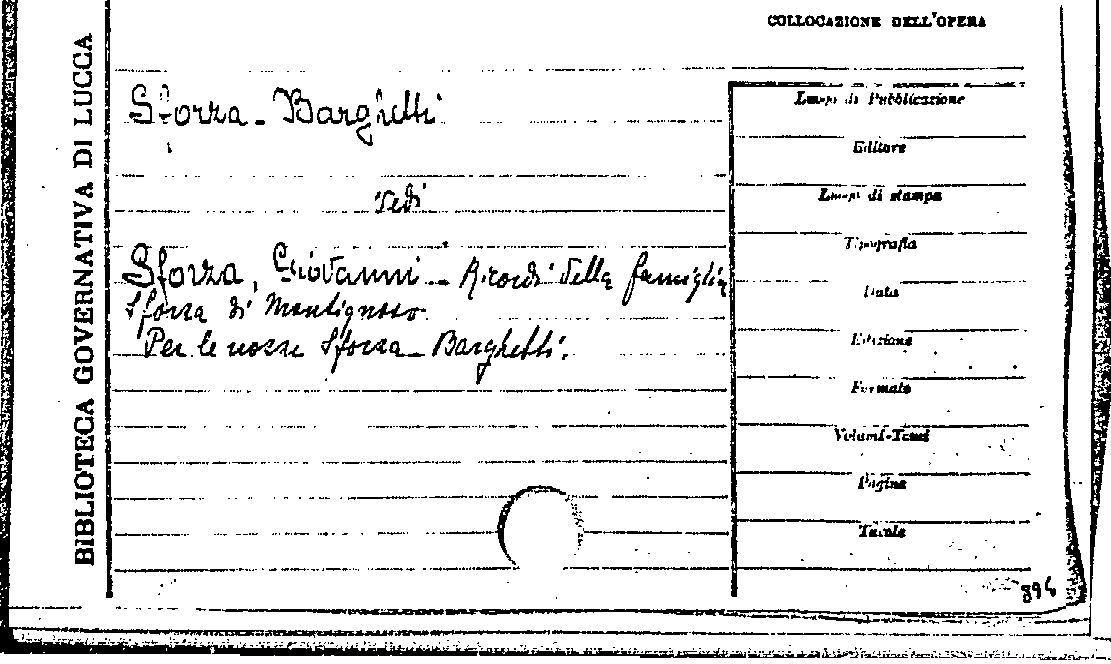 BIBLIOTECA GOVERNATIVA DI LUCCA
COLLOCAZIONE DELL'OPERA
Sforza - Barghetti
vedi
Sforza, Giovanni - Ricordi della famiglia
Sforza di Montignoso.
Per le nozze Sforza - Barghetti.
Luogo di Pubblicazione
Editore
Luogo di stampa
Tipografia
Data
Edizione
Formato
Volumi-Tomi
Pagine
Tavole
894